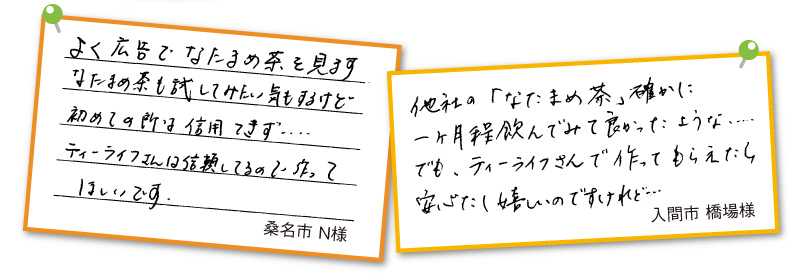 よく広告でなたまめ茶を見ます
なたまめ茶も試してみたい気もするけど
初めての所は信用できず‥‥
ティーライフさんは信頼してるので作って
ほしいです.
桑名市 N様
他社の「なたまめ茶」確かに
一ヶ月程飲んでみて良かったような、‥‥
でも、ティーライフさんで作ってもらえたら
安心だし嬉しいのですけれど…
入間市 橋場様